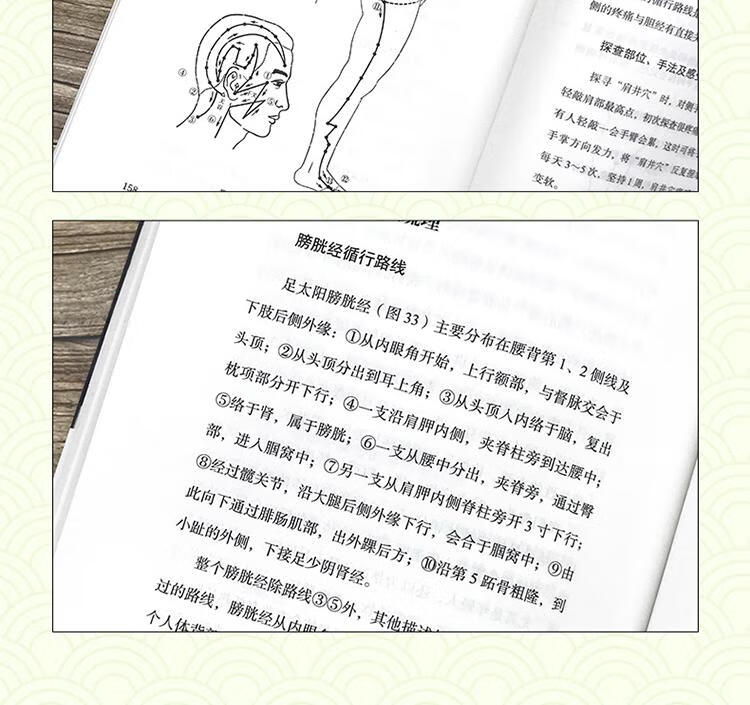 的循行路线
侧的疼痛与胆经有直接
探查部位、手法及感
探寻“肩井穴”时，对侧手
轻敲肩部最高点，初次探查很疼痛
有人轻敲一会手臂会累，这时可将
手掌方向发力，将“肩井穴”反复
每天3~5次，坚持1周，肩井
变软。
⑪
④
①
②
③
⑤
⑥
⑬
⑫
158
膀胱经循行路线
足太阳膀胱经（图33）主要分布在腰背第1、2侧线及
下肢后侧外缘：①从内眼角开始，上行额部，与督脉交会于
头顶；②从头顶分出到耳上角；③从头顶入内络于脑，复出
枕项部分开下行；④一支沿肩胛内侧，夹脊柱旁到达腰中；
⑤络于肾，属于膀胱；⑥一支从腰中分出，夹脊旁，通过臀
部，进入腘窝中；⑦另一支从肩胛内侧脊柱旁开3寸下行；
⑧经过髋关节，沿大腿后侧外缘下行，会合于腘窝中；⑨由
此向下通过腓肠肌部，出外踝后方；⑩沿第5跖骨粗隆，到
小趾的外侧，下接足少阴肾经。
整个膀胱经除路线③⑤外，其他描述
过的路线，膀胱经从内眼
个人体背部